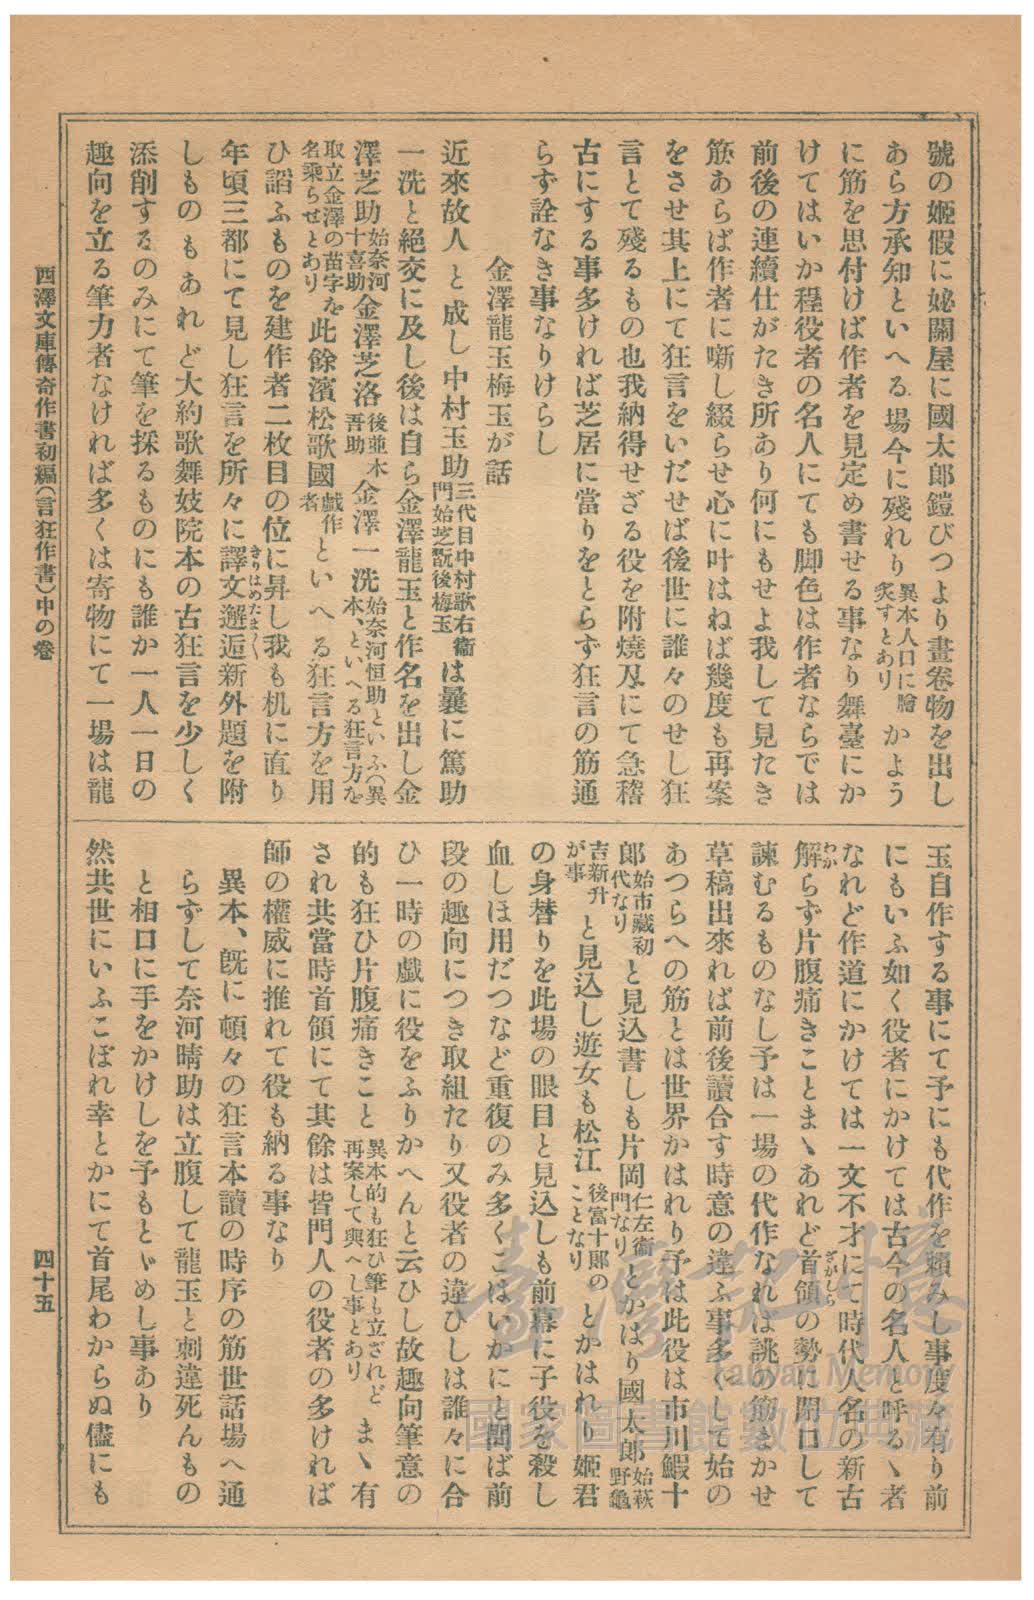 號の姫假に妼關屋に國太郎鎧びつより畫卷物を出し
あら方承知といへる場今に殘れり異本人口に膾炙すとありかよう
に筋を思付けば作者を見定め書せる事なり舞臺にか
けてはいか程役者の名人にても脚色は作者ならでは
前後の連續仕がたき所あり何にもせよ我して見たき
筋あらば作者に噺し綴らせ心に叶はねば幾度も再案
をさせ其上にて狂言をいだせば後世に誰々のせし狂
言とて殘るもの也我納得せざる役を附燒刄にて急稽
古にする事多ければ芝居に當りをとらず狂言の筋通
らず詮なき事なりけらし
金澤龍玉梅玉が話
近來故人と成し中村玉助三代目中村歌右衞門始芝翫後梅玉は曩に篤助
一洗と絕交に及し後は自ら金澤龍玉と作名を出し金
澤芝助始奈河十喜助金澤芝洛後並木吾助金澤一洗始奈河恒助といふ(異本、といへる狂言方を
取立金澤の苗字を名乘らせとあり此餘濱松歌國戲作者といへる狂言方を用
ひ謟ふものを建作者二枚目の位に昇し我も机に直り
年頃三都にて見し狂言を所々に譯文邂逅新外題を附
きりはめたま〱
しものもあれど大約歌舞妓院本の古狂言を少しく
添削するのみにて筆を採るものにも誰か一人一日の
趣向を立る筆力者なければ多くは寄物にて一場は龍
玉自作する事にて予にも代作を賴みし事度々有り前
にもいふ如く役者にかけては古今の名人と呼るゝ者
なれど作道にかけては一文不才にて時代人名の新古
わか
解らず片腹痛きことまゝあれど首領の勢に閉口して
ざがしら
諫むるものなし予は一場の代作なれば誂の筋まかせ
草稿出來れば前後讀合す時意の違ふ事多くして始の
あつらへの筋とは世界かはれり予は此役は市川鰕十
郎始市藏初代なりと見込書しも片岡仁左衞門なりとかはり國太郎始萩野龜
吉新升が事と見込し遊女も松江後富十郎のことなりとかはれり姬君
の身替りを此場の眼目と見込しも前幕に子役を殺し
血しほ用だつなど重復のみ多くこはいかにと聞ば前
段の趣向につき取組たり又役者の違ひしは誰々に合
ひ一時の戲に役をふりかへんと云ひし故趣向筆意の
的も狂ひ片腹痛きこと異本的も狂ひ筆も立ざれど再案して與へし事とありまゝ有
され共當時首領にて其餘は皆門人の役者の多ければ
師の權威に推れて役も納る事なり
異本、旣に頓々の狂言本讀の時序の筋世話場へ通
らずして奈河晴助は立腹して龍玉と刺違死んもの
と相口に手をかけしを予もとゞめし事あり
然共世にいふこぼれ幸とかにて首尾わからぬ儘にも
西澤文庫傳奇作書初編(言狂作書)中の卷
四十五
臺灣記憶
Taiwan Memory
國家圖書館數位典藏